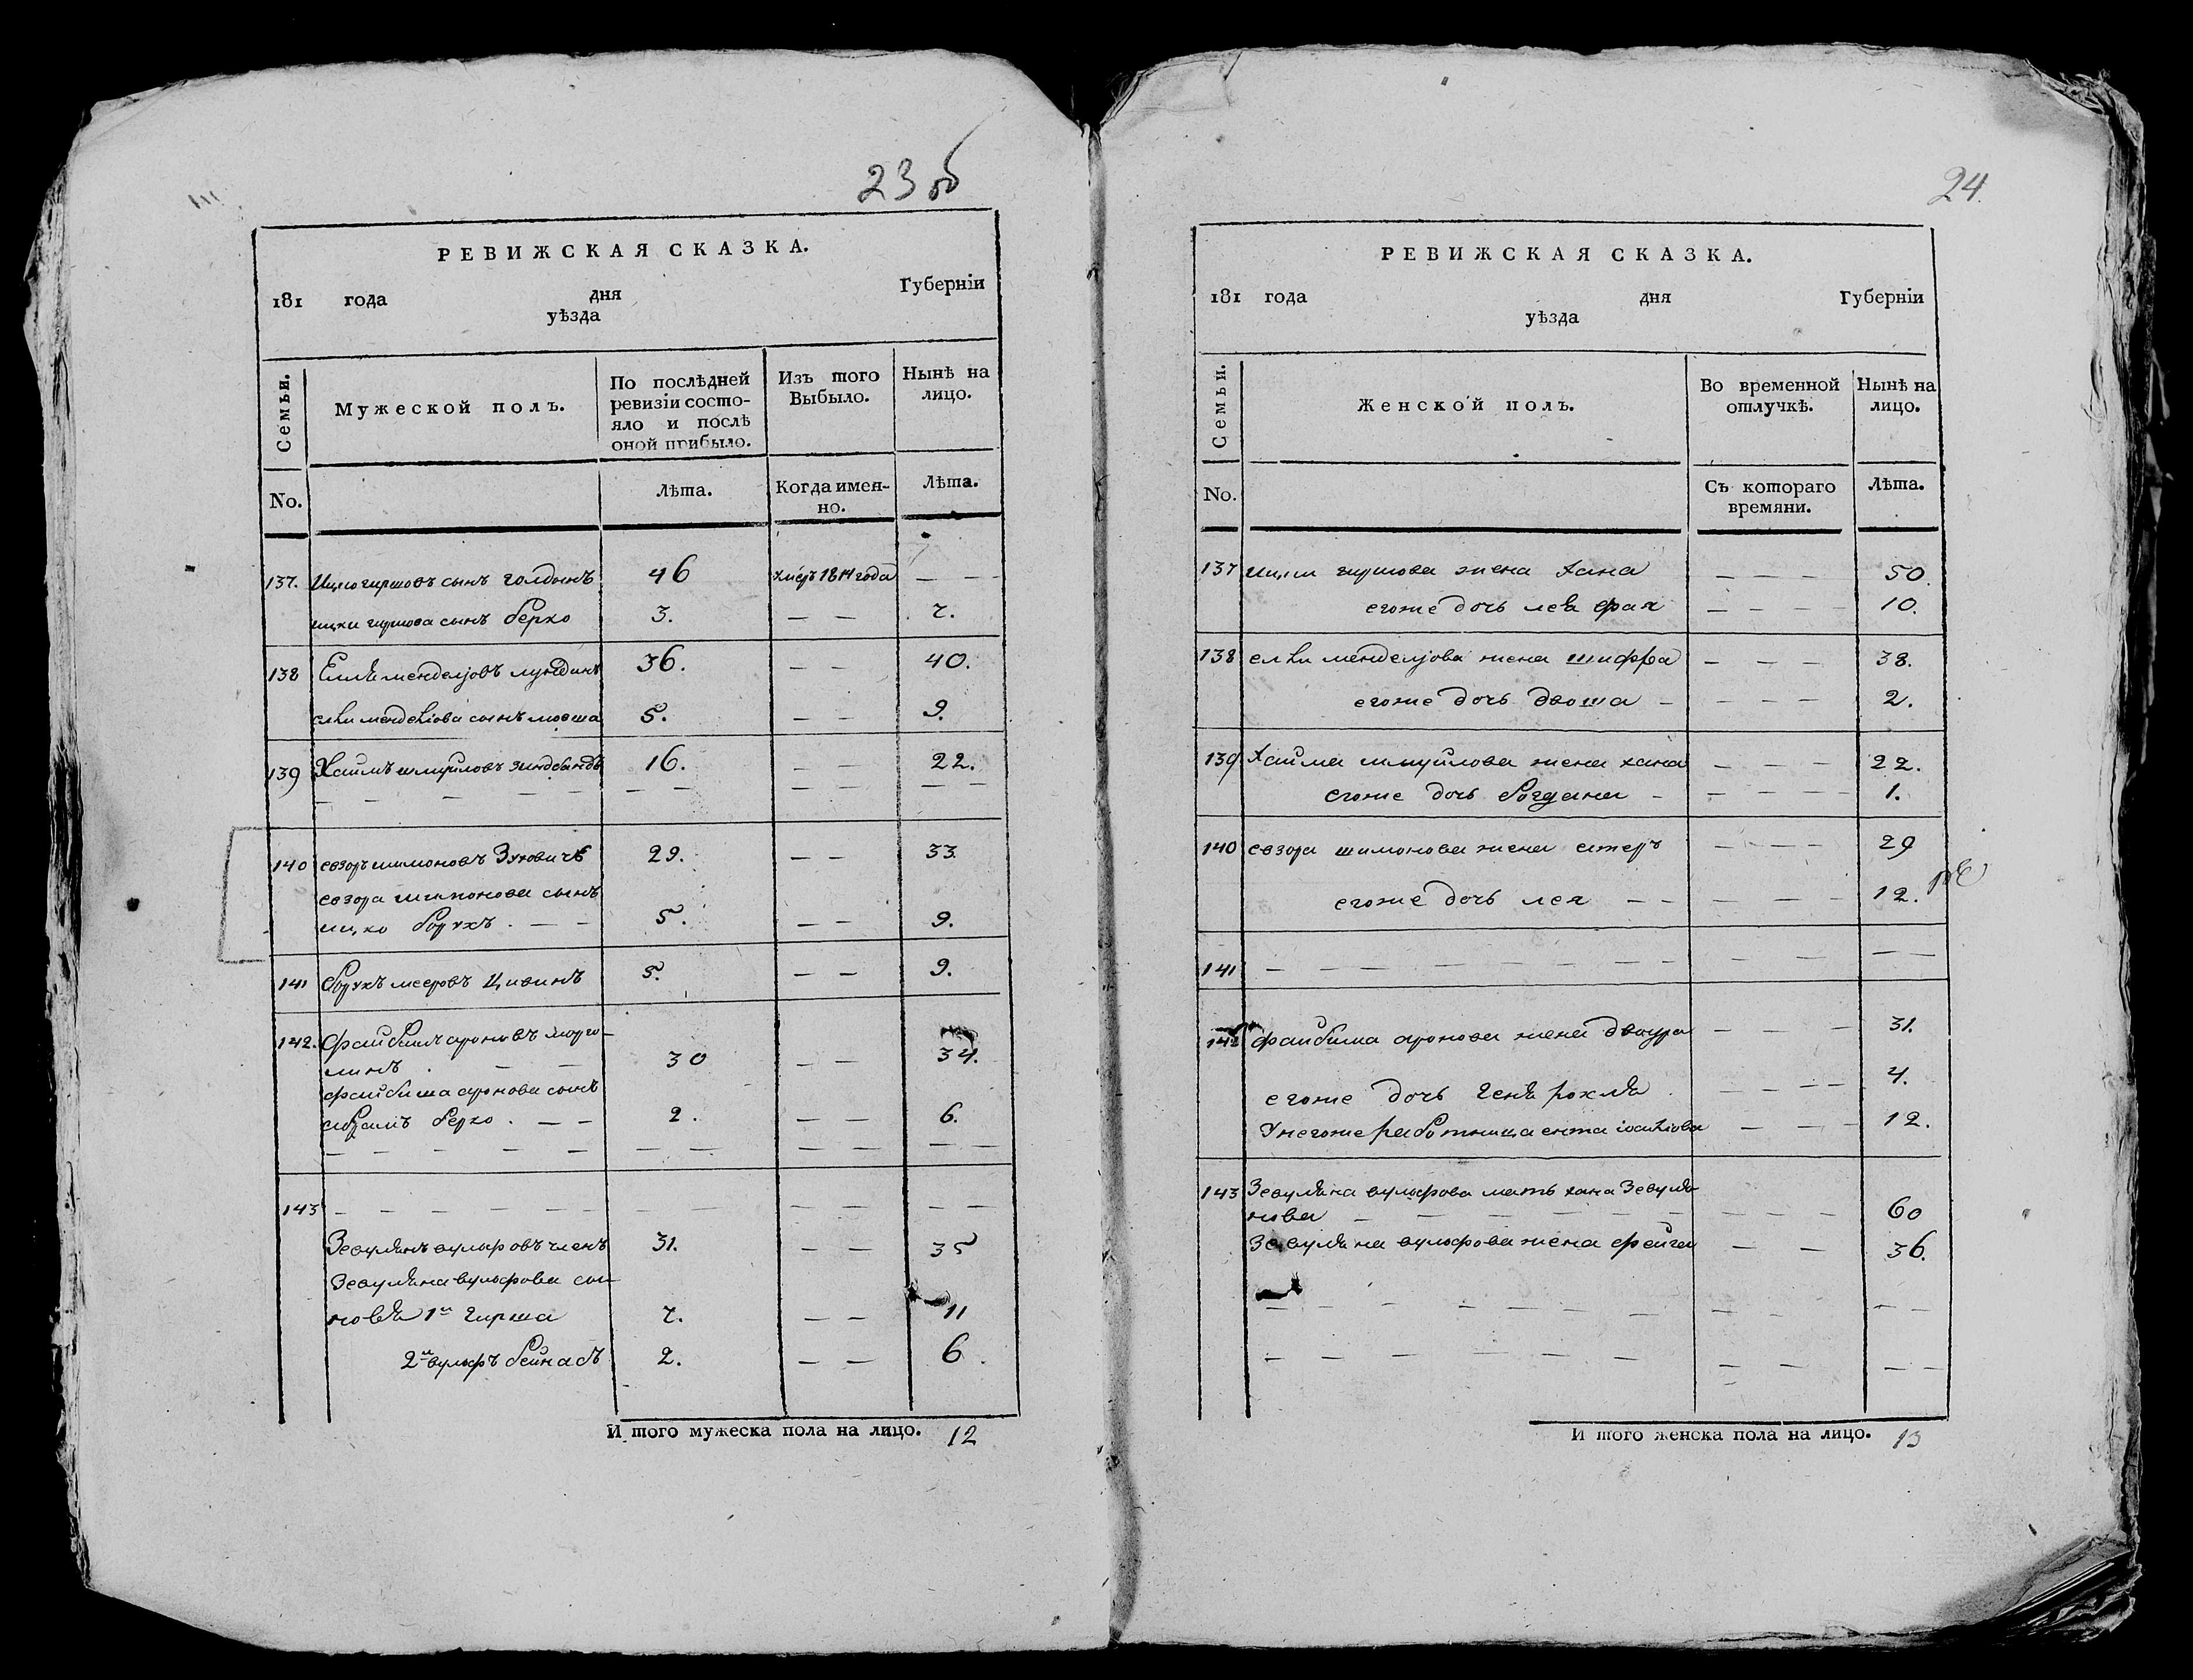 23 об
РЕВИЖСКАЯ СКАЗКА.
181 года дня Губерніи
уѣзда
Семьи. Мужеской полъ. По послѣдней ревизіи состояло и послѣ оной прибыло. Изъ того Выбыло. Нынѣ на лицо.
No. Лѣта. Когда именно. Лѣта.
137. Ицко гиршовъ сынъ голдинъ 46 1814 года — —
ицки гиршова сынъ берко 3. — — 7.
138 менделювъ 36. — — 40.
сынъ мовша 5. — — 9.
139 Хаимъ шмуйловъ 16. — — 22.
— — — — — — — — — — —
140 евзоръ шимоновъ Зуховичъ 29. — — 33.
евзора шимонова сынъ
ицко борухъ. — — 5. — — 9.
141 борухъ мееровъ Цивинъ 5. — — 9.
142. Файбишъ ароновъ марго-
линъ . — — 30 — — 34.
файбиша аронова сынъ
абрамъ берко . — — 2. — — 6.
— — — — — — — — — — —
143 — — — — — — — — — — — —
Зевулянъ вульфовъ 31. — — 35
Зевуляна вульфова сы-
новья 1й гирша 7. — — 11
2й вульфъ бейнасъ 2. — — 6.
И того мужеска пола на лицо. 12
24.
РЕВИЖСКАЯ СКАЗКА.
181 года дня Губерніи
уѣзда
Семьи. Женской полъ. Во временной отлучкѣ. Нынѣ на лицо.
No. Съ котораго времяни. Лѣта.
137 ицки гиршова жена хана — — — — 50.
егоже дочь лея фая — — — — 10.
138 менделюва жена шифра — — — 38.
егоже дочь двоша — — — — 2.
139 Хаима шмуйлова жена хана — — — 22.
егоже дочь богдана — — — — — 1.
140 евзора шимонова жена естеръ — — — — 29
егоже дочь лея — — — — — 12.
141 — — — — — — — — — — — — — —
142 файбиша аронова жена двойра — — — 31.
егоже дочь геня рохля . — — — — 4.
У негоже работница ента — — — 12.
143 Зевуляна вульфова мать хана Зевуля-
нова — — — — — — — — — 60
Зевуляна вульфова жена фейга — — 36.
— — — — — — — — — — —
— — — — — — — — — — —
И того женска пола на лицо. 13